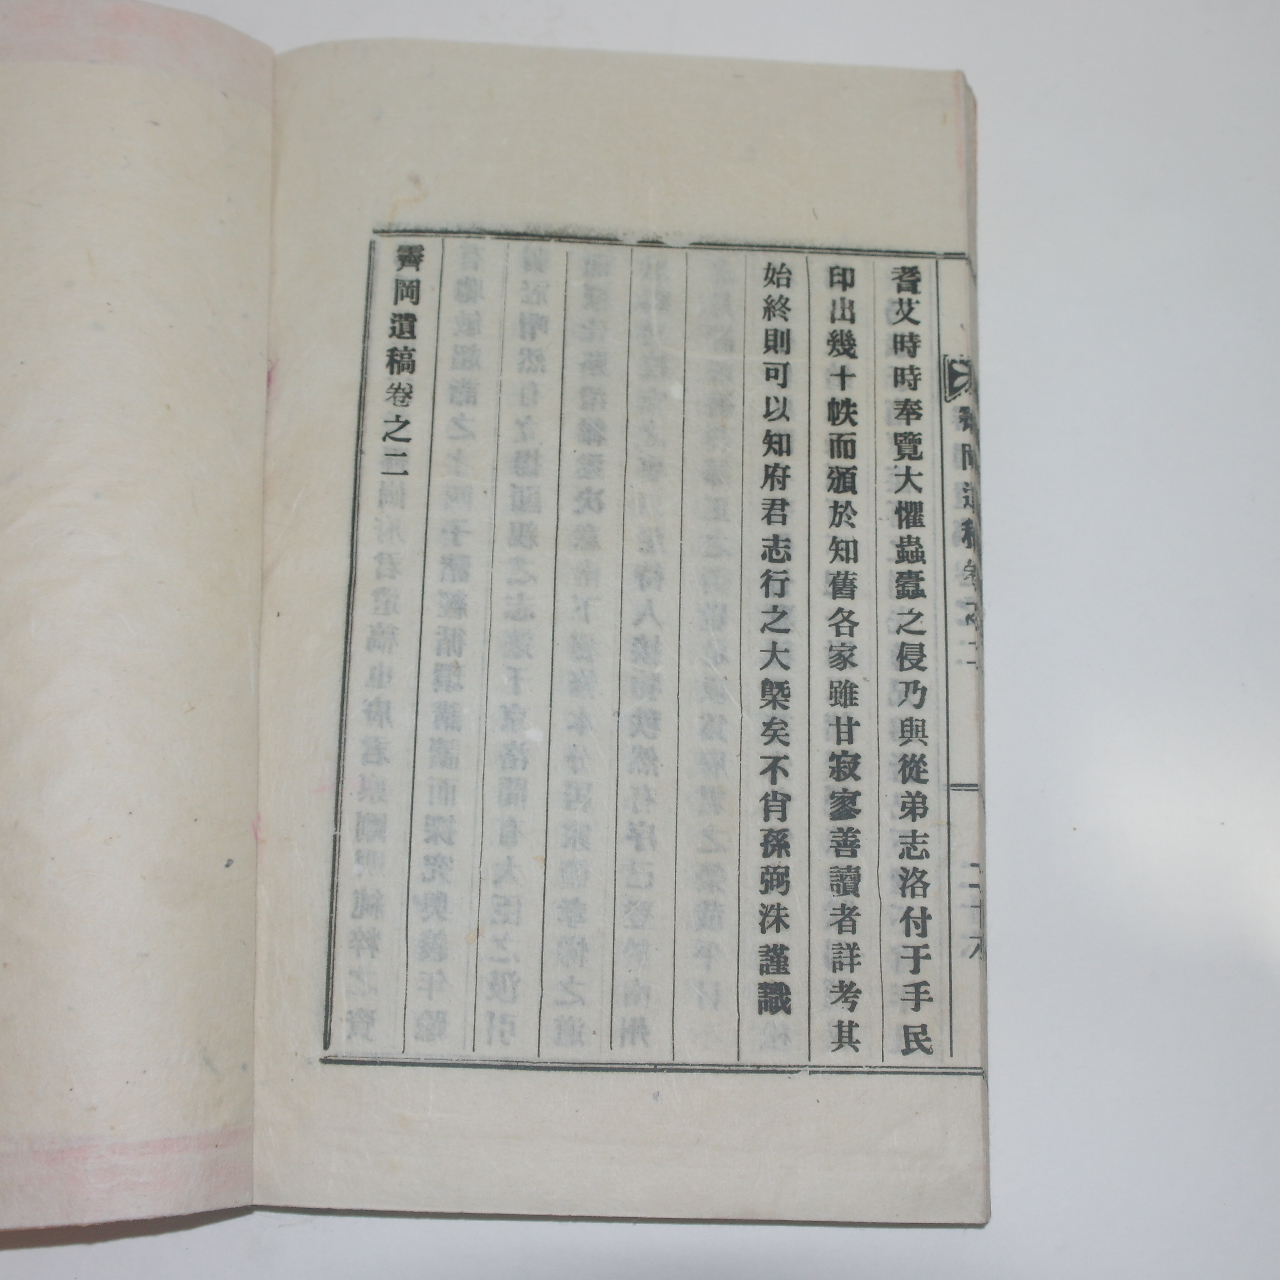 耆艾時時奉覽大懼蟲蠹之侵乃與從弟志洛付于手民
印出幾十帙而頒於知舊各家雖甘寂寥善讀者詳考其
始終則可以知府君志行之大槩矣不肖孫弼洙謹識
霽岡遺稿卷之二
岡遺稿卷之二
二十六